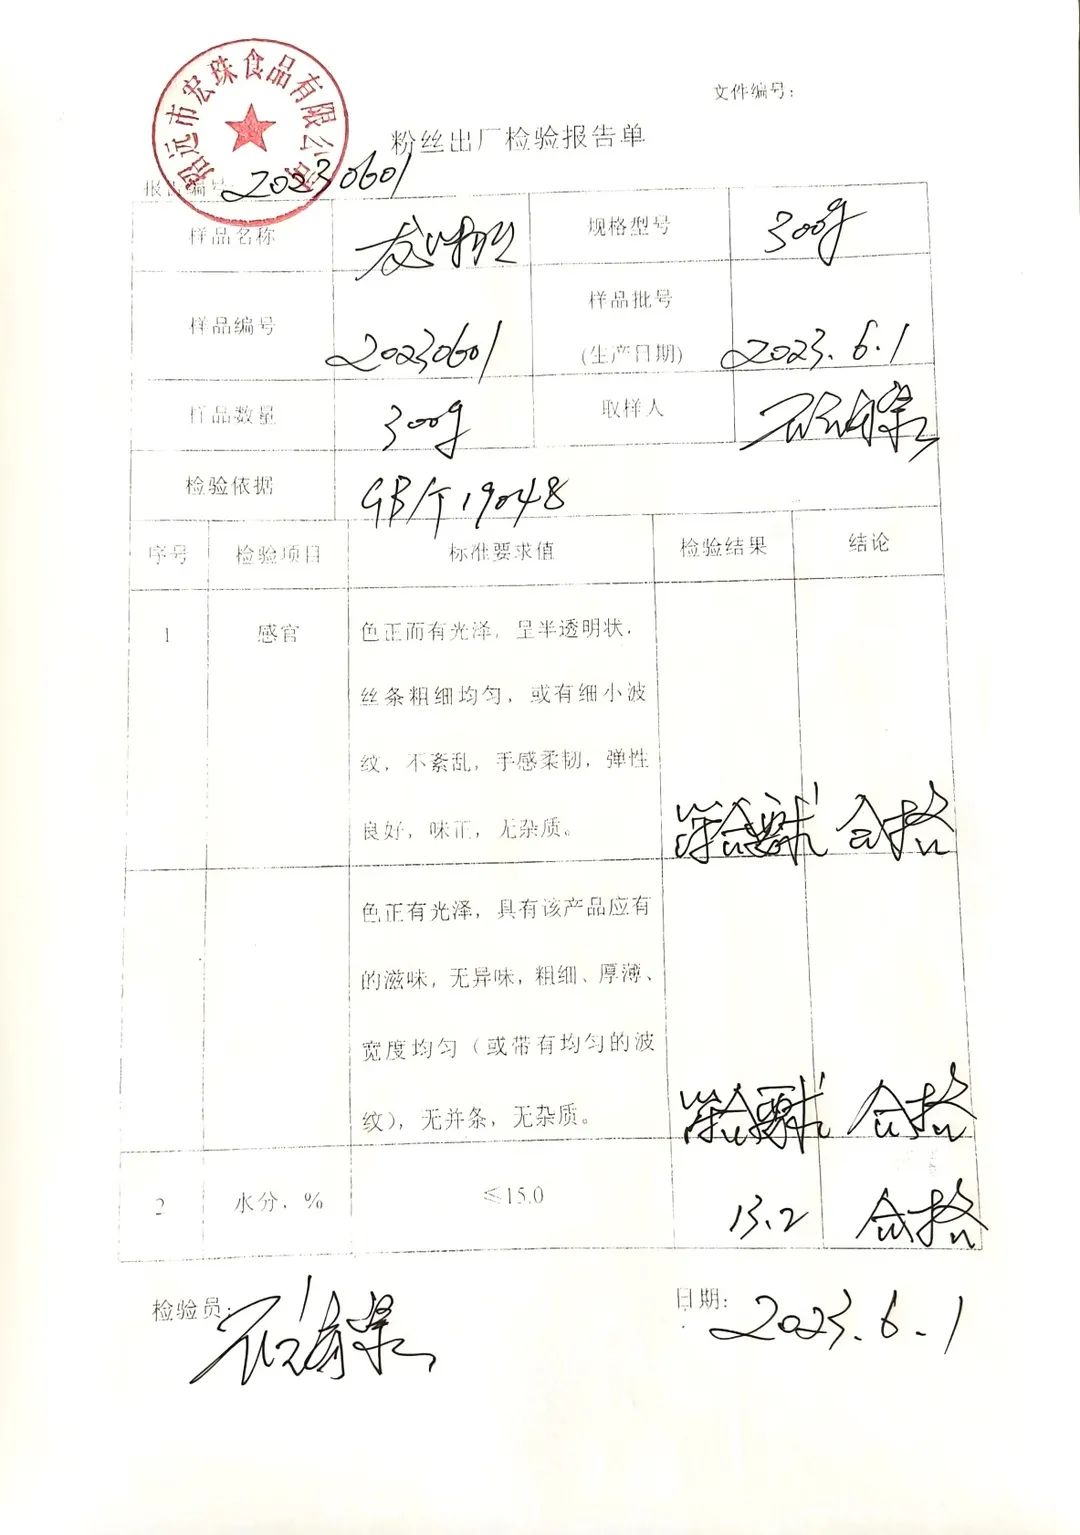 招远市宏珠食品有限公司
文件编号:
粉丝出厂检验报告单
报告编号: 20230601
样品名称 规格型号 300g
样品编号 20230601 样品批号 (生产日期) 2023.6.1
样品数量 300g 取样人
检验依据 GB/T 19048
序号 检验项目 标准要求值 检验结果 结论
1 感官 色正而有光泽,呈半透明状,
丝条粗细均匀,或有细小波
纹,不紊乱,手感柔韧,弹性
良好,味正,无杂质。 符合要求 合格
色正有光泽,具有该产品应有
的滋味,无异味,粗细、厚薄、
宽度均匀(或带有均匀的波
纹),无并条,无杂质。 符合要求 合格
2 水分,% ≤15.0 13.2 合格
检验员: 日期: 2023.6.1